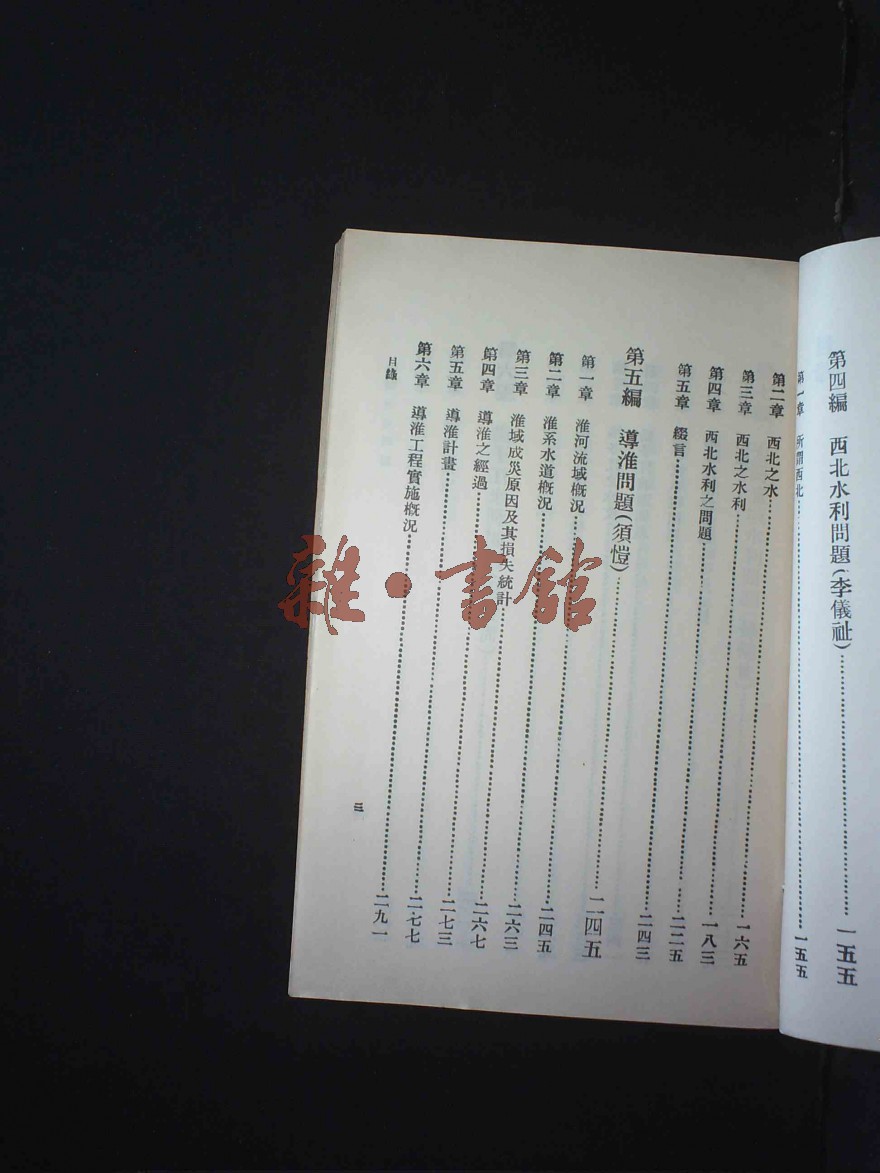 第四編 西北水利問題(李儀祉)……一五五
第一章 所謂西北……一五五
第二章 西北之水……一六五
第三章 西北之水利……一八三
第四章 西北水利之問題……二二五
第五章 綴言……二四三
第五編 導淮問題(須愷)……二四五
第一章 淮河流域概況……二四五
第二章 淮系水道概況……二六三
第三章 淮域成災原因及其損失統計……二六七
第四章 導淮之經過……二七三
第五章 導淮計畫……二七七
第六章 導淮工程實施概況……二九一
目錄 三
雜·書館